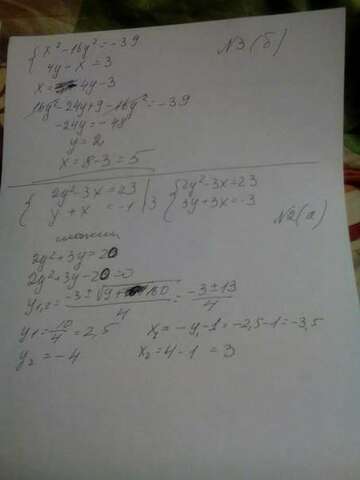 N3 (б)
{ x² - 16y² = -39
4y - x = 3
x = 4y - 3
16y² - 24y + 9 - 16y² = -39
-24y = -48
y = 2
x = 8 - 3 = 5
N2 (а)
{ 2y² - 3x = 23
y + x = -1 | 3
{ 2y² - 3x = 23
3y + 3x = -3
сложим
2y² + 3y = 20
2y² + 3y - 20 = 0
y₁,₂ = (-3 ± √(9 + 160)) / 4 = (-3 ± 13) / 4
y₁ = 10/4 = 2,5 x₁ = -y - 1 = -2,5 - 1 = -3,5
y₂ = -4 x₂ = 4 - 1 = 3